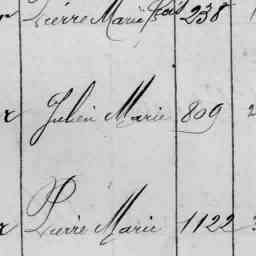 Pierre Marie fois 238
Julien Marie 809
Pierre Marie 1122